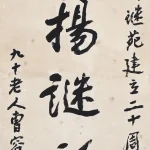 謎苑建立二十周
揚謎
九十老人曾